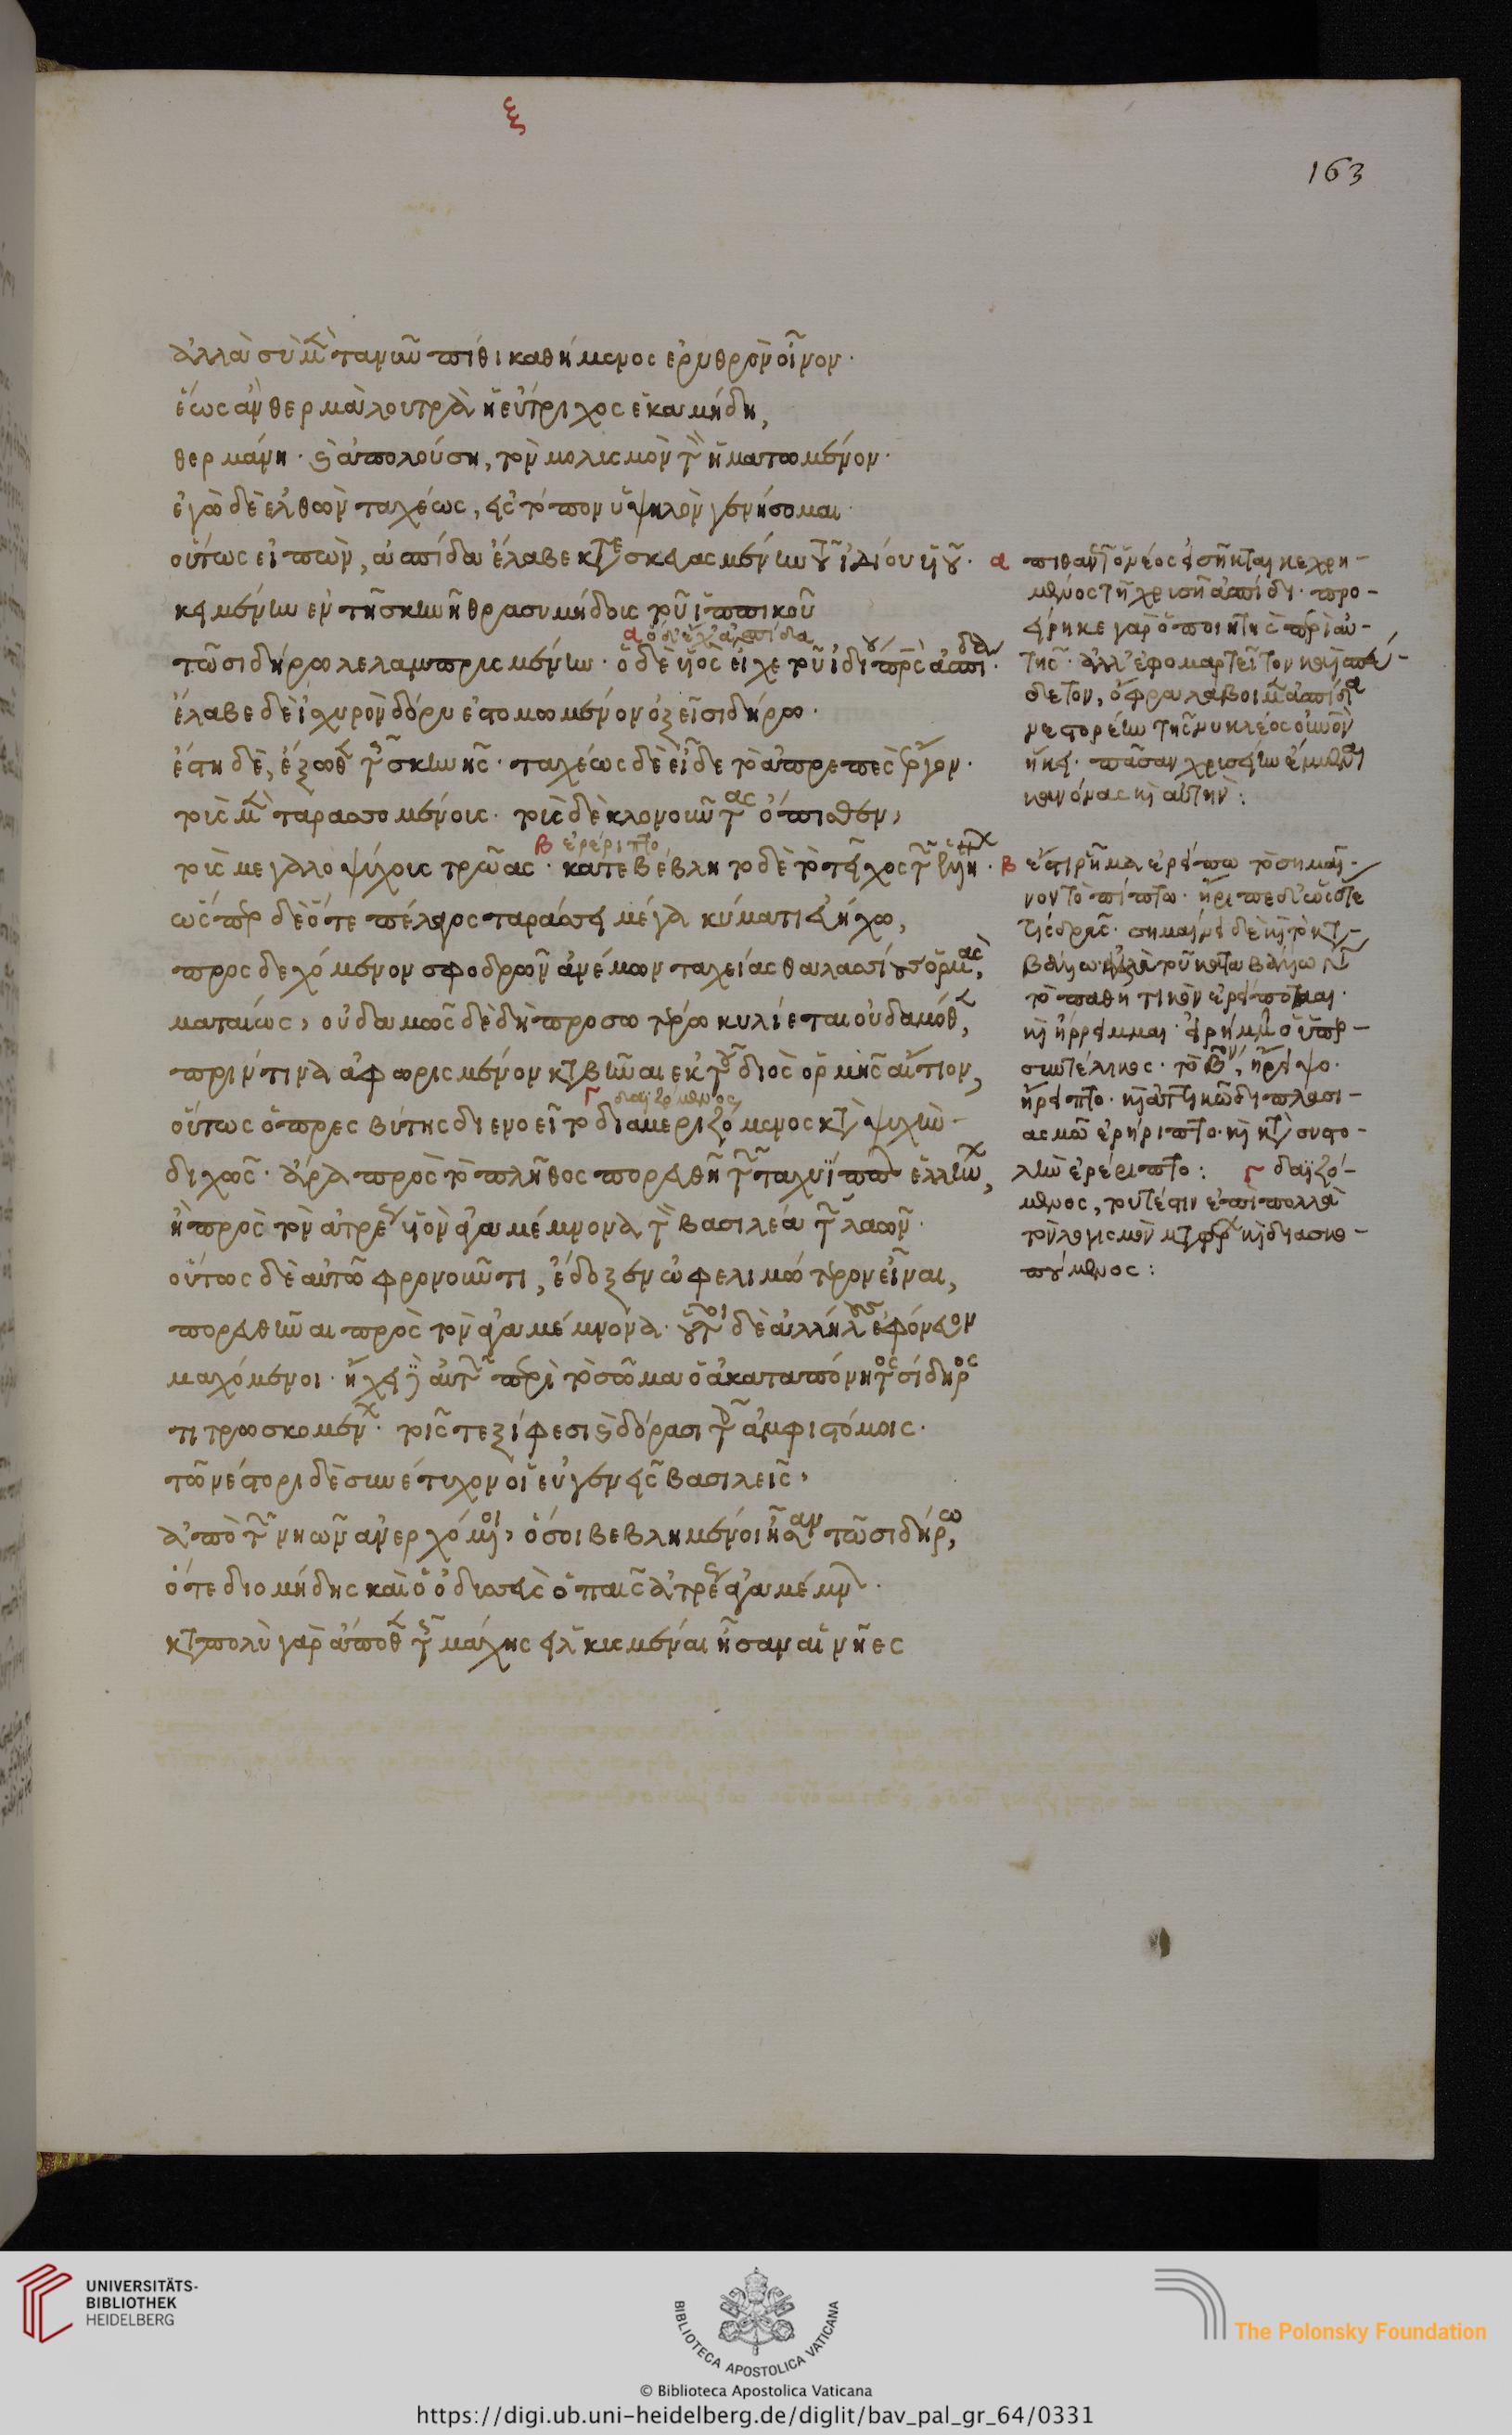 ξ
163
ἀλλὰ σὺ μὲν τανῦν πίθι καθήμενος ἐρυθρὸν οἶνον·
ἕως ἂν θερμὰ λουτρὰ ἡ εὔτριχος ἑκαμήδη,
θερμάνη· καὶ ἀπολούση, τὸν μολυσμὸν τὸν ἡματωμένον·
ἐγὼ δὲ ἐλθὼν ταχέως, εἰς τόπον ὑψηλὸν γενήσομαι·
οὕτως εἰπὼν, ἀσπίδα ἔλαβε κατεσκευασμένην τοῦ ἰδίου υἱοῦ·
κειμένην ἐν τῆ σκηνῆ θρασυμήδους τοῦ ἱππικοῦ
α ὁ δ' ἔχ' ἀσπίδα
τῶ σιδήρω λελαμπρυσμένην· ὁ δὲ υἱὸς εἶχε τοῦ ἰδίου πατρὸς ἀσπίδα·
ἔλαβε δὲ ἰσχυρὸν δόρυ ἐστομωμένον ὀξεῖ σιδήρω·
ἔστη δὲ, ἔξωθεν τῆς σκηνῆς· ταχέως δὲ εἶδε τὸ ἀπρεπὲς ἔργον·
τοὺς μὲν ταρασσομένους· τοὺς δὲ κλονοῦντας ὄπισθεν,
β ἐρέριπτο
τοὺς μεγαλοψύχους τρῶας· κατεβέβλητο δὲ τὸ τεῖχος τῶν ἑλλήνων·
ὥσπερ δὲ ὅτε πέλαγος ταράσσει μέγα κύματι ἀήχω,
προσδεχόμενον σφοδρῶν ἀνέμων ταχείας θαλασσίους ὁρμάς,
ματαίως, οὐδαμῶς δὲ δὴ προσωτέρω κυλίεται οὐδαμόθεν,
πρίν τινα ἀφωρισμένον καταβῆναι ἐκ τοῦ διὸς ὁρμῆς αἴτιον,
γ δαϊζόμενος
οὕτως ὁ πρεσβύτης διενοεῖτο διαμεριζόμενος κατὰ ψυχὴν
διχῶς· ἆρα πρὸς τὸ πλῆθος πορευθῆ τῶν ταχυΐππων ἑλλήνων,
ἢ πρὸς τὸν ἀτρέως υἱὸν ἀγαμέμνονα τὸν βασιλέα τῶν λαῶν·
οὕτως δὲ αὐτῶ φρονοῦντι, ἔδοξεν ὠφελιμώτερον εἶναι,
πορευθῆναι πρὸς τὸν ἀγαμέμνονα· οὗτοι δὲ ἀλλήλους ἐφόνευον
μαχόμενοι· ἤχει δὲ αὐτῶν περὶ τὸ σῶμα ὁ ἀκαταπόνητος σίδηρος
τιτρωσκομένων· τοῖς τε ξίφεσι καὶ δόρασι τοῖς ἀμφιστόμοις·
τῶ νέστορι δὲ συνέτυχον οἱ εὐγενεῖς βασιλεῖς,
ἀπὸ τῶν νηῶν ἀνερχόμενοι, ὅσοι βεβλημένοι ἦσαν τῶ σιδήρω,
ὅτε διομήδης καὶ ὁ ὀδυσσεὺς ὁ παῖς ἀτρέως ἀγαμέμνων·
κατὰ πολὺ γὰρ ἄποθεν τῆς μάχης εἱλκυσμέναι ἦσαν αἱ νῆες
α πιθανῶς ὁ νέος εἰσῆκται κεχρη-
μένος τῆ χρυσῆ ἀσπίδι· προ-
είρηκε γὰρ ὁ ποιητὴς περὶ αὐ-
τῆς· ἀλλ' ἐφομαρτεῖτον καὶ σπεύ-
δετον, ὄφρα λάβοιμεν ἀσπίδα
νεστορέην τῆς νῦν κλέος οὐρανὸν
ἥκει· πᾶσαν χρυσείην ἔμμεναι
κανόνας καὶ αὐτήν:
β ἔστι ῥῆμα ἐρείπω τὸ σημαῖ-
νον τὸ πίπτω· ἤριπε δ' ὡς ὅτε
τις δρῦς· σημαίνει δὲ καὶ τὸ κατα-
τὸ παθητικὸν ἐρείπομαι·
καὶ ἤρειμμαι·
συντέλικος· τὸ βον, ἤρειψο·
ἤρειπτο· καὶ ἀττικῶ διπλασι-
ασμῶ ἐρήριπτο· καὶ κατὰ συστο-
λὴν ἐρέριπτο: γ δαϊζό-
μενος, τουτέστιν ἐπὶ πολλὰ
τὸν λογισμὸν μεταφέρων καὶ διασκο-
πούμενος:
UNIVERSITÄTS-
BIBLIOTHEK
HEIDELBERG
BIBLIOTECA APOSTOLICA VATICANA
The Polonsky Foundation
© Biblioteca Apostolica Vaticana
https://digi.ub.uni-heidelberg.de/diglit/bav_pal_gr_64/0331